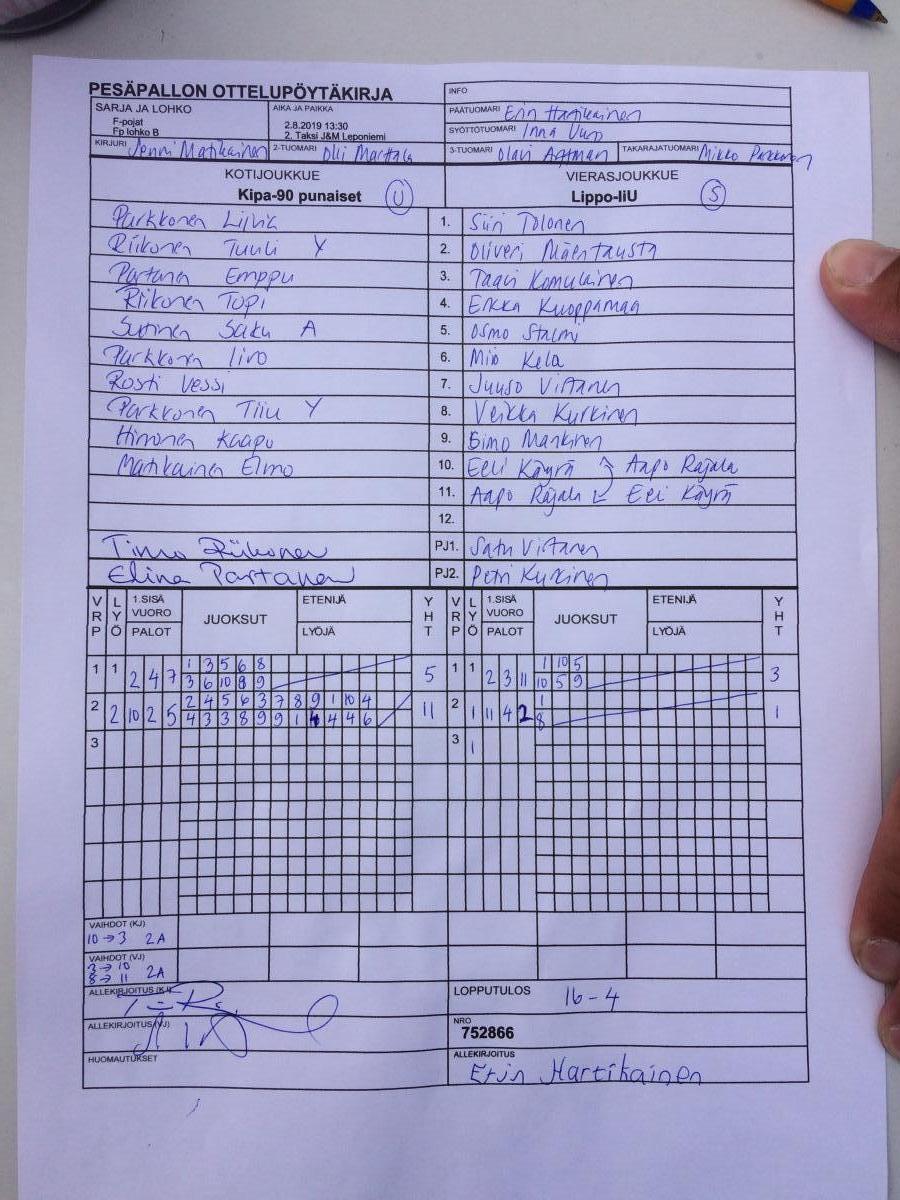 PESÄPALLON OTTELUPÖYTÄKIRJA
INFO
SARJA JA LOHKO
F-pojat
Fp lohko B
AIKA JA PAIKKA
2.8.2019 13:30
2, Taksi J&M Leponiemi
PÄÄTUOMARI Erin Hartikainen
SYÖTTÖTUOMARI Inna
KIRJURI Jenni Matikainen 2-TUOMARI Olli Marttala 3-TUOMARI Olavi TAKARAJATUOMARI Mikko Parkkonen
KOTIJOUKKUE
Kipa-90 punaiset U
VIERASJOUKKUE
Lippo-liU S
Parkkonen 1. Siiri Tolonen
Riikonen Tuuli Y 2. Oliveri Mäentausta
Partanen Emppu 3. Taavi Komulainen
Riikonen Topi 4. Erkka Kuoppamaa
Surinen Saku A 5. Osmo
Parkkonen Iivo 6. Mio Kela
Rosti Vessi 7. Juuso Virtanen
Parkkonen Tiiu Y 8. Veikka Kurkinen
Hirvonen Kaapo 9. Simo Mankinen
Matikainen Elmo 10. Eeli Käyrä Aapo Rajala
11. Aapo Rajala Eeli Käyrä
12.
Timo Riikonen PJ1. Satu Virtanen
Elina Partanen PJ2. Petri Kurkinen
VRP LYÖ 1.SISÄ VUORO PALOT JUOKSUT ETENIJÄ LYÖJÄ YHT VRP LYÖ 1.SISÄ VUORO PALOT JUOKSUT ETENIJÄ LYÖJÄ YHT
1 1 2 4 7 1 3 5 6 8 5 1 1 2 3 11 1 10 5 3
3 6 10 8 9 10 5 9
2 2 10 2 5 2 4 5 6 3 7 8 9 1 10 4 11 2 1 11 4 2 1 1
4 3 3 8 9 9 1 4 4 4 6 8
3 3 1
VAIHDOT (KJ)
10→3 2A
VAIHDOT (VJ)
3→10
8→11 2A
ALLEKIRJOITUS (KJ)
LOPPUTULOS 16-4
ALLEKIRJOITUS (VJ)
NRO
752866
HUOMAUTUKSET
ALLEKIRJOITUS
Erin Hartikainen